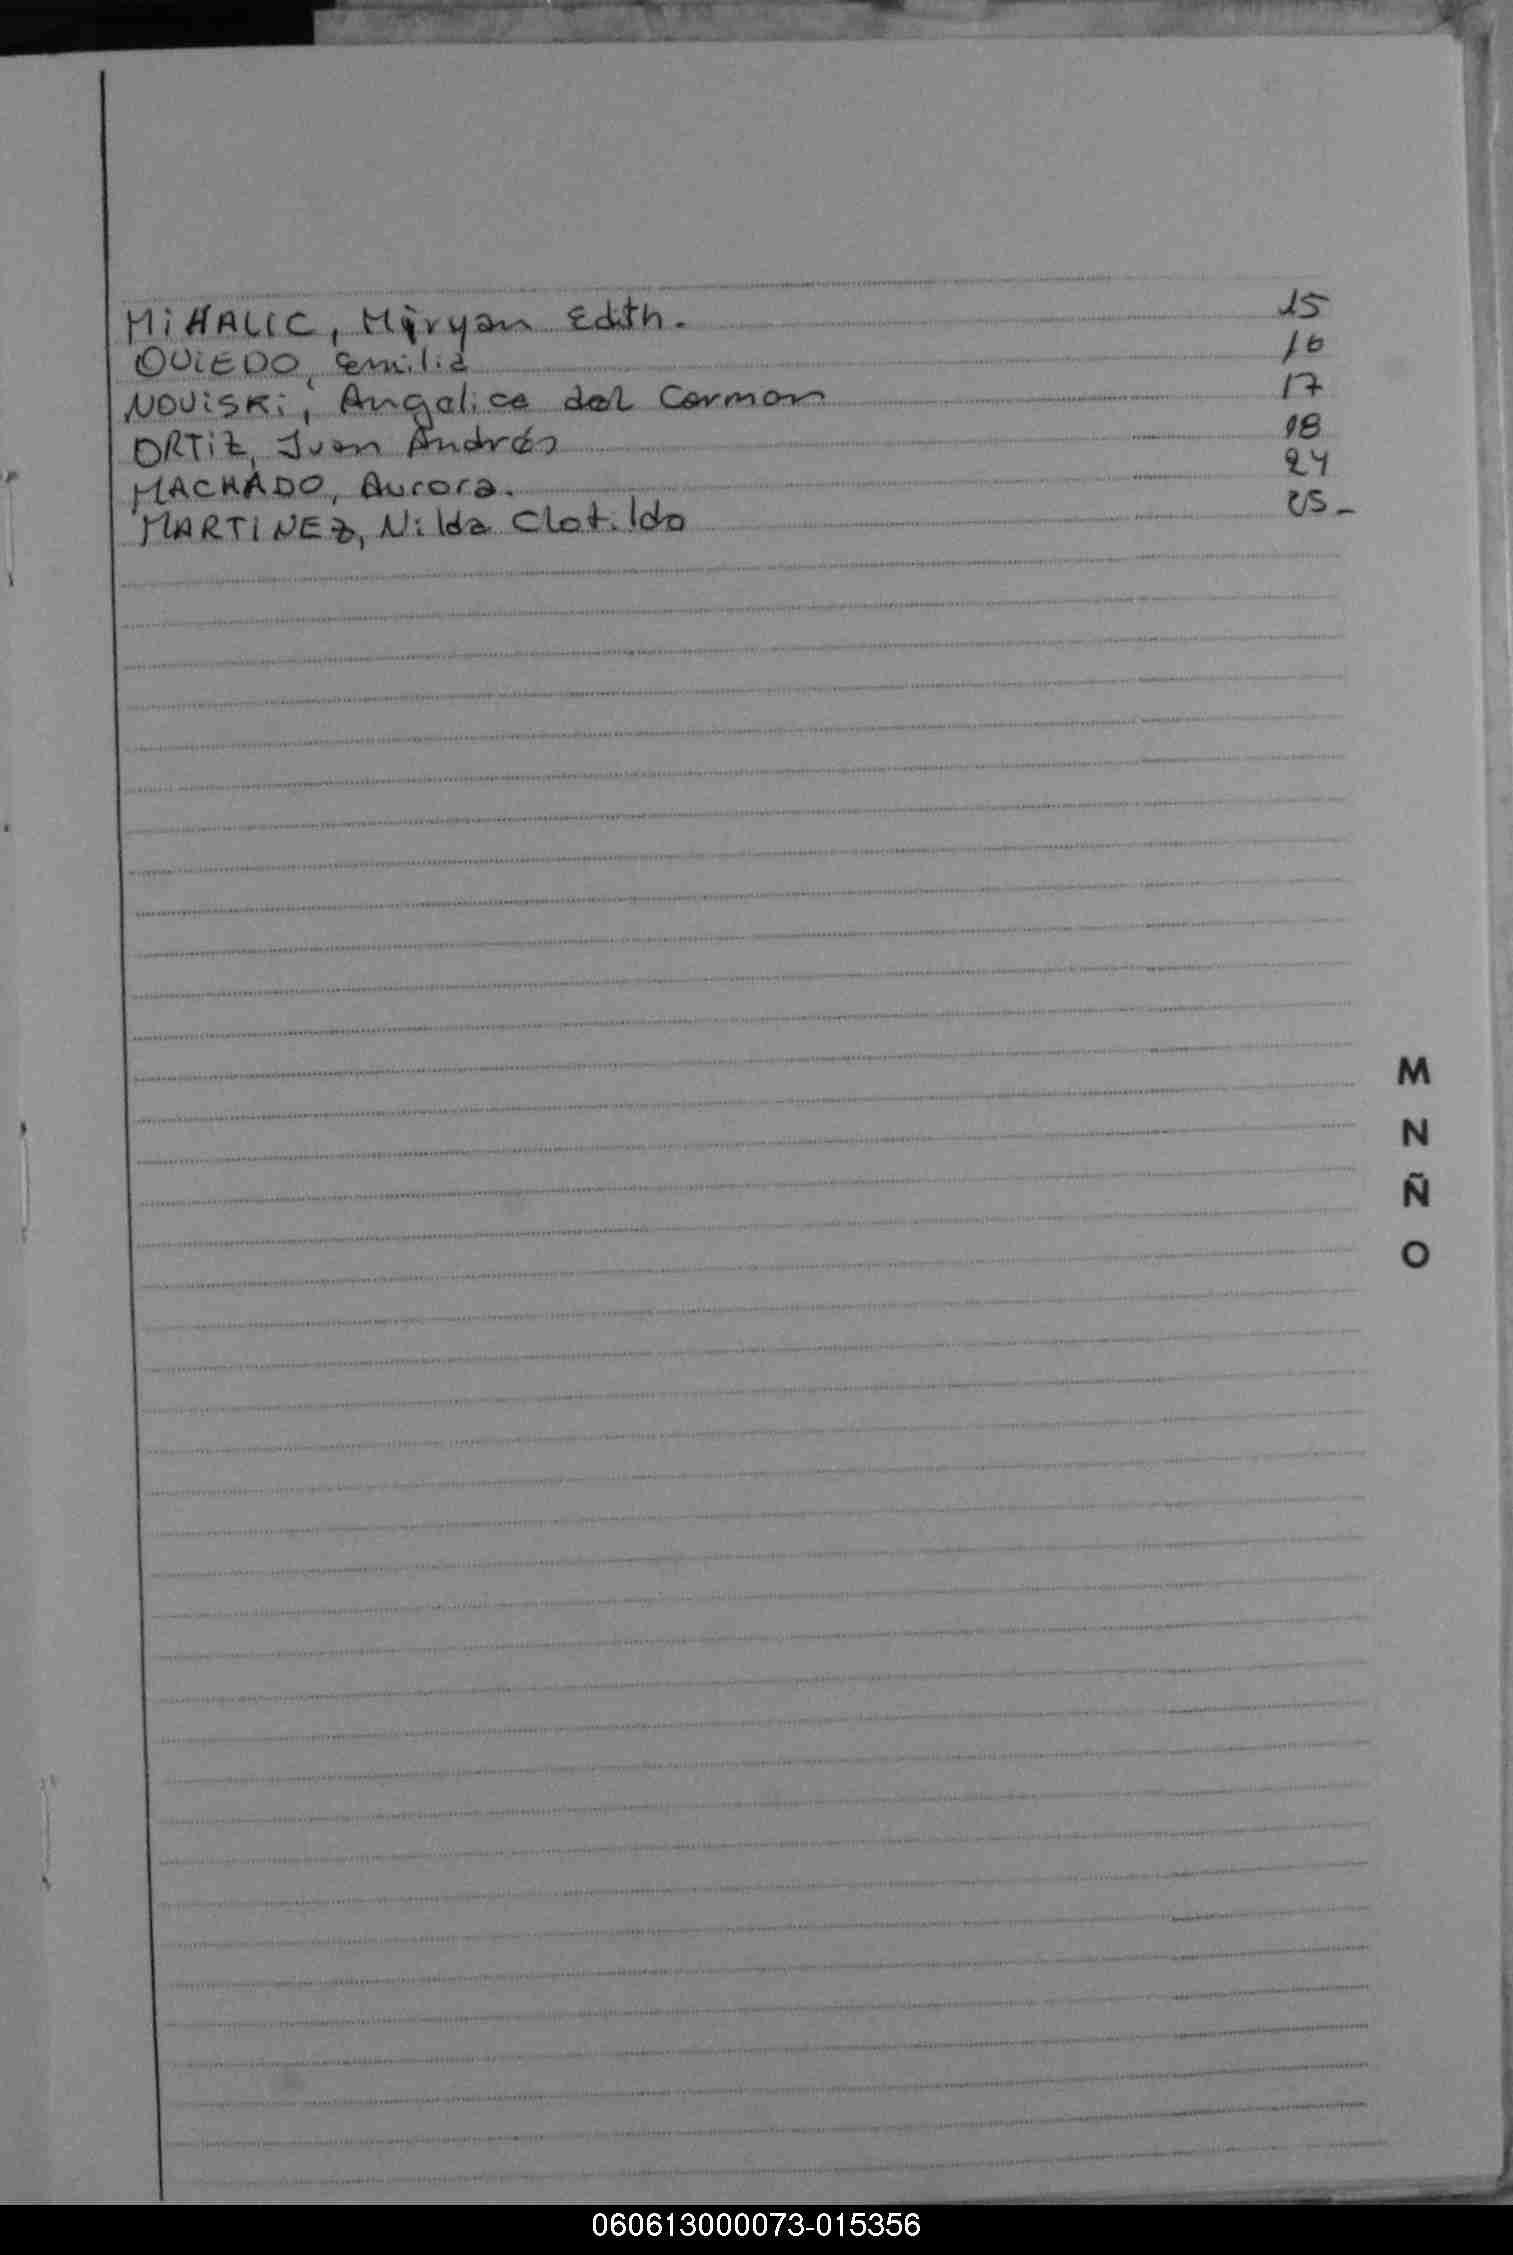 MiHALIC, Miryan Edith. 15
OVIEDO, Emilia 16
NOViSKi, Angelica del Carmen 17
ORTiZ, Juan Andrés 18
MACHADO, Aurora. 24
MARTINEZ, Nilda Clotilde 25-
M
N
Ñ
O
060613000073-015356